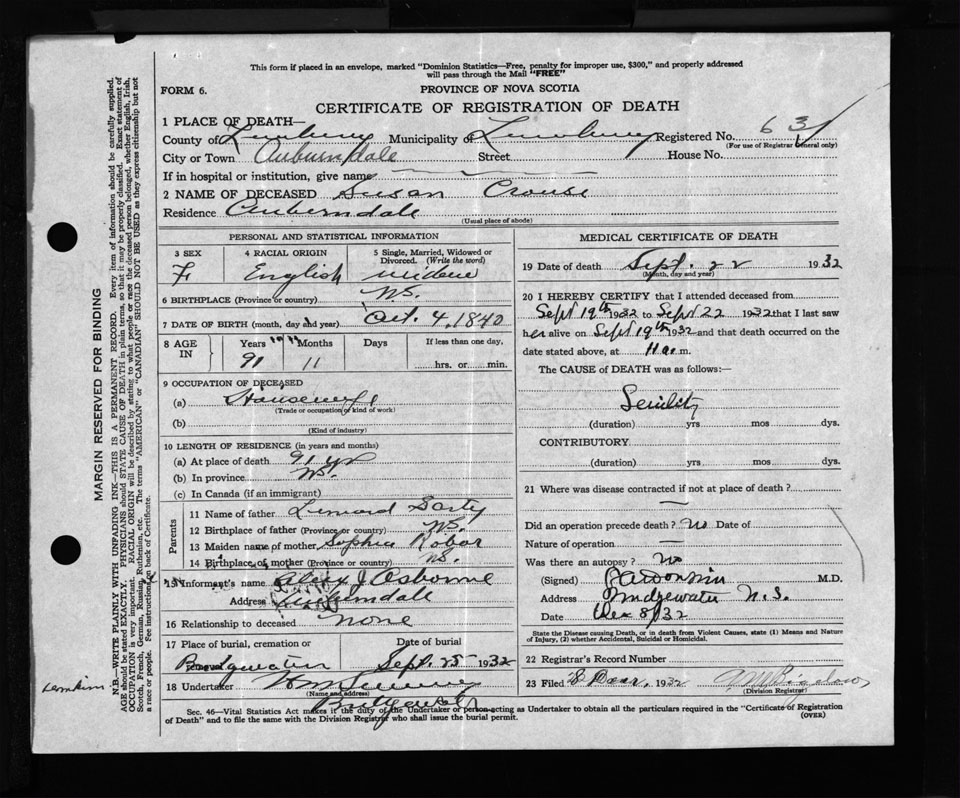 This form if placed in an envelope, marked "Dominion Statistics—Free, penalty for improper use, $300," and properly addressed
will pass through the Mail "FREE"
FORM 6.
PROVINCE OF NOVA SCOTIA
CERTIFICATE OF REGISTRATION OF DEATH
1 PLACE OF DEATH—
County of Lunenburg Municipality of Lunenburg Registered No. 631
(For use of Registrar General only)
City or Town Auburndale Street House No.
If in hospital or institution, give name
2 NAME OF DECEASED Susan Crouse
Residence Auberndale
(Usual place of abode)
PERSONAL AND STATISTICAL INFORMATION
3 SEX 4 RACIAL ORIGIN 5 Single, Married, Widowed or Divorced. (Write the word)
F English widow
6 BIRTHPLACE (Province or country) N.S.
7 DATE OF BIRTH (month, day and year) Oct. 4, 1840
8 AGE IN Years Months Days If less than one day,
91 11 hrs. or min.
9 OCCUPATION OF DECEASED
(a) Housewife
(Trade or occupation or kind of work)
(b)
(Kind of industry)
10 LENGTH OF RESIDENCE (in years and months)
(a) At place of death 91 yr
(b) In province N.S.
(c) In Canada (if an immigrant)
Parents
11 Name of father Lennard Sarty
12 Birthplace of father (Province or country) N.S.
13 Maiden name of mother Sophia Robar
14 Birthplace of mother (Province or country) N.S.
15 Informant's name Alex J Osborne
Address Auberndale
16 Relationship to deceased none
17 Place of burial, cremation or removal Date of burial
Bridgewater Sept. 25 1932
18 Undertaker Wm
(Name and address)
Bridgewater
MEDICAL CERTIFICATE OF DEATH
19 Date of death Sept. 22 1932
(Month, day and year)
20 I HEREBY CERTIFY that I attended deceased from
Sept 19th 1932 to Sept 22 1932 that I last saw
her alive on Sept 19th 1932 and that death occurred on
the date stated above, at 11 a.m.
The CAUSE of DEATH was as follows:—
Senility
(duration) yrs mos dys.
CONTRIBUTORY
(duration) yrs mos dys.
21 Where was disease contracted if not at place of death?
—
Did an operation precede death? No Date of
Nature of operation —
Was there an autopsy? No
(Signed) M.D.
Address Bridgewater N.S.
Date Dec 8/32
State the Disease causing Death, or in death from Violent Causes, state (1) Means and Nature
of Injury, (2) whether Accidental, Suicidal or Homicidal.
22 Registrar's Record Number
23 Filed 8 1932
(Division Registrar)
Sec. 46—Vital Statistics Act makes it the duty of the Undertaker or person acting as Undertaker to obtain all the particulars required in the "Certificate of Registration
of Death" and to file the same with the Division Registrar who shall issue the burial permit.
(OVER)
MARGIN RESERVED FOR BINDING
N.B.—WRITE PLAINLY WITH UNFADING INK—THIS IS A PERMANENT RECORD. Every item of information should be carefully supplied.
AGE should be stated EXACTLY. PHYSICIANS should STATE CAUSE OF DEATH in plain terms, so that it may be properly classified. Exact statement of
OCCUPATION is very important. RACIAL ORIGIN will be described by stating to what people or race the deceased person belonged, whether English, Irish,
Scotch, French, German, Russian, Ruthenian, etc. The terms "AMERICAN" or "CANADIAN" SHOULD NOT BE USED as they express citizenship but not
a race or people. See instructions on back of Certificate.